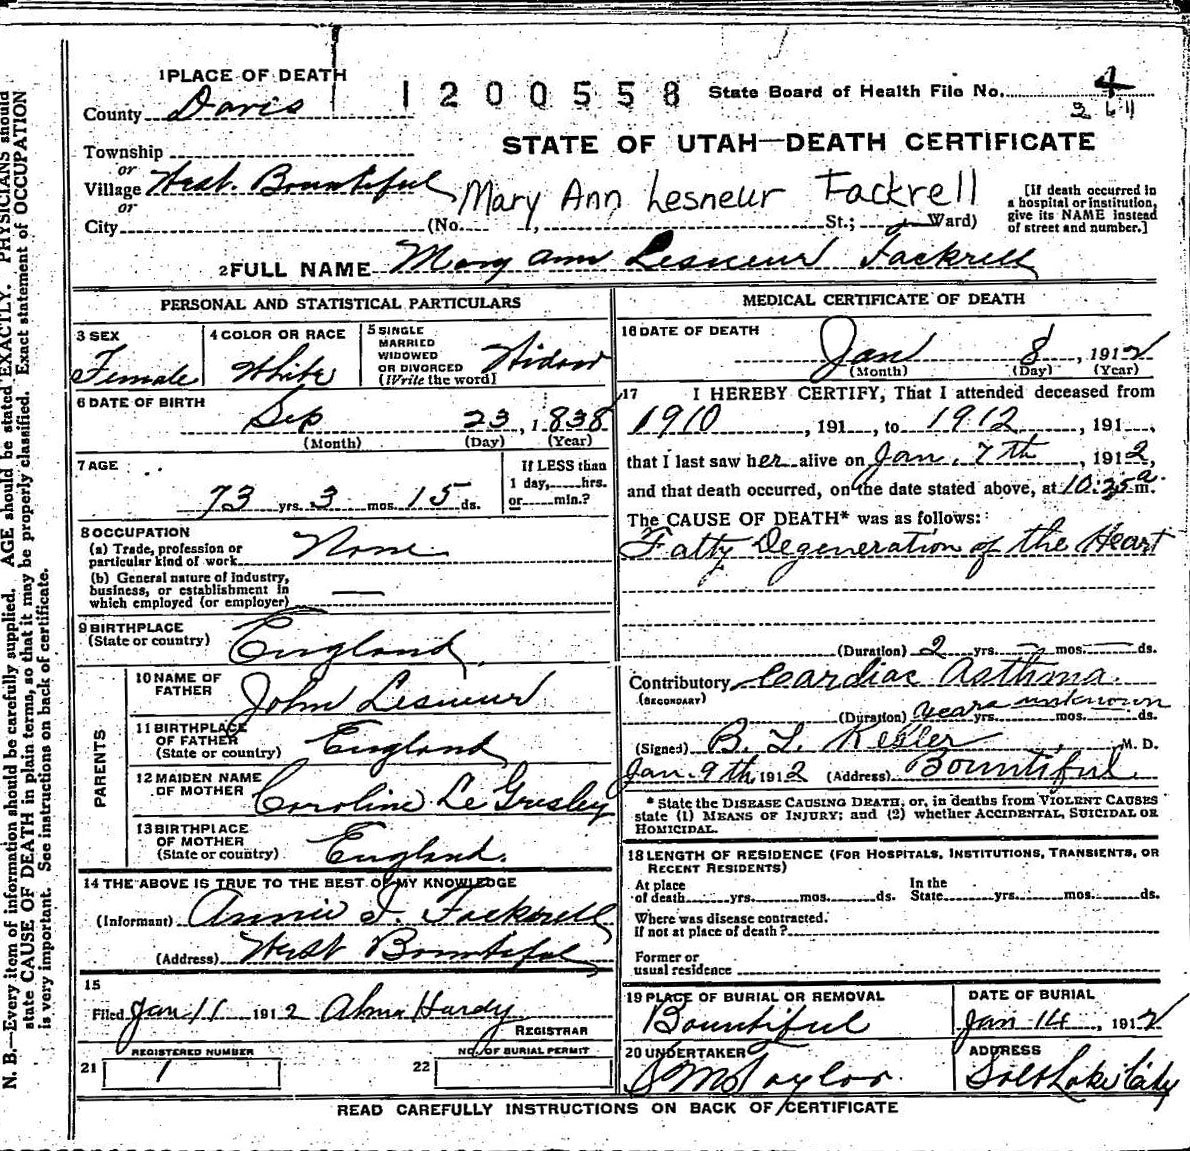 1 PLACE OF DEATH
County Davis
1200558
State Board of Health File No. 4
2611
STATE OF UTAH—DEATH CERTIFICATE
Township
or
Village West. Bountiful
or
City
Mary Ann Lesneur Fackrell
(No. , St.; Ward)
[If death occurred in
a hospital or institution,
give its NAME instead
of street and number.]
2 FULL NAME Mary Ann Lesneur Fackrell
PERSONAL AND STATISTICAL PARTICULARS
3 SEX
Female
4 COLOR OR RACE
White
5 SINGLE
MARRIED
WIDOWED
OR DIVORCED
(Write the word)
Widow
6 DATE OF BIRTH
Sep 23, 1838
(Month) (Day) (Year)
7 AGE
73 yrs. 3 mos. 15 ds.
If LESS than
1 day, hrs.
or min.?
8 OCCUPATION
(a) Trade, profession or
particular kind of work None
(b) General nature of industry,
business, or establishment in
which employed (or employer) —
9 BIRTHPLACE
(State or country) England
PARENTS
10 NAME OF
FATHER John Lesneur
11 BIRTHPLACE
OF FATHER
(State or country) England
12 MAIDEN NAME
OF MOTHER Caroline Le Gresley
13 BIRTHPLACE
OF MOTHER
(State or country) England.
14 THE ABOVE IS TRUE TO THE BEST OF MY KNOWLEDGE
(Informant) Annie F. Fackrell
(Address) West Bountiful
15
Filed Jan 11 1912 Alma Hardy
REGISTRAR
REGISTERED NUMBER
21 1
NO. OF BURIAL PERMIT
22
MEDICAL CERTIFICATE OF DEATH
16 DATE OF DEATH
Jan 8, 1912
(Month) (Day) (Year)
17 I HEREBY CERTIFY, That I attended deceased from
1910, 191 , to 1912, 191 ,
that I last saw her alive on Jan. 7th, 1912,
and that death occurred, on the date stated above, at 10:35 a m.
The CAUSE OF DEATH* was as follows:
Fatty Degeneration of the Heart
(Duration) 2 yrs. — mos. — ds.
Contributory Cardiac Asthma.
(SECONDARY)
(Duration) years yrs. unknown mos. ds.
(Signed) B. L. Kesler, M. D.
Jan. 9th 1912 (Address) Bountiful
* State the DISEASE CAUSING DEATH, or, in deaths from VIOLENT CAUSES
state (1) MEANS OF INJURY; and (2) whether ACCIDENTAL, SUICIDAL OR
HOMICIDAL.
18 LENGTH OF RESIDENCE (FOR HOSPITALS, INSTITUTIONS, TRANSIENTS, OR
RECENT RESIDENTS)
At place
of death yrs. mos. ds.
In the
State yrs. mos. ds.
Where was disease contracted.
If not at place of death?
Former or
usual residence
19 PLACE OF BURIAL OR REMOVAL
Bountiful
DATE OF BURIAL
Jan 14, 1912
20 UNDERTAKER
S M Taylor.
ADDRESS
Salt Lake City
READ CAREFULLY INSTRUCTIONS ON BACK OF CERTIFICATE
N. B.—Every item of information should be carefully supplied. AGE should be stated EXACTLY. PHYSICIANS should
state CAUSE OF DEATH in plain terms, so that it may be properly classified. Exact statement of OCCUPATION
is very important. See instructions on back of certificate.